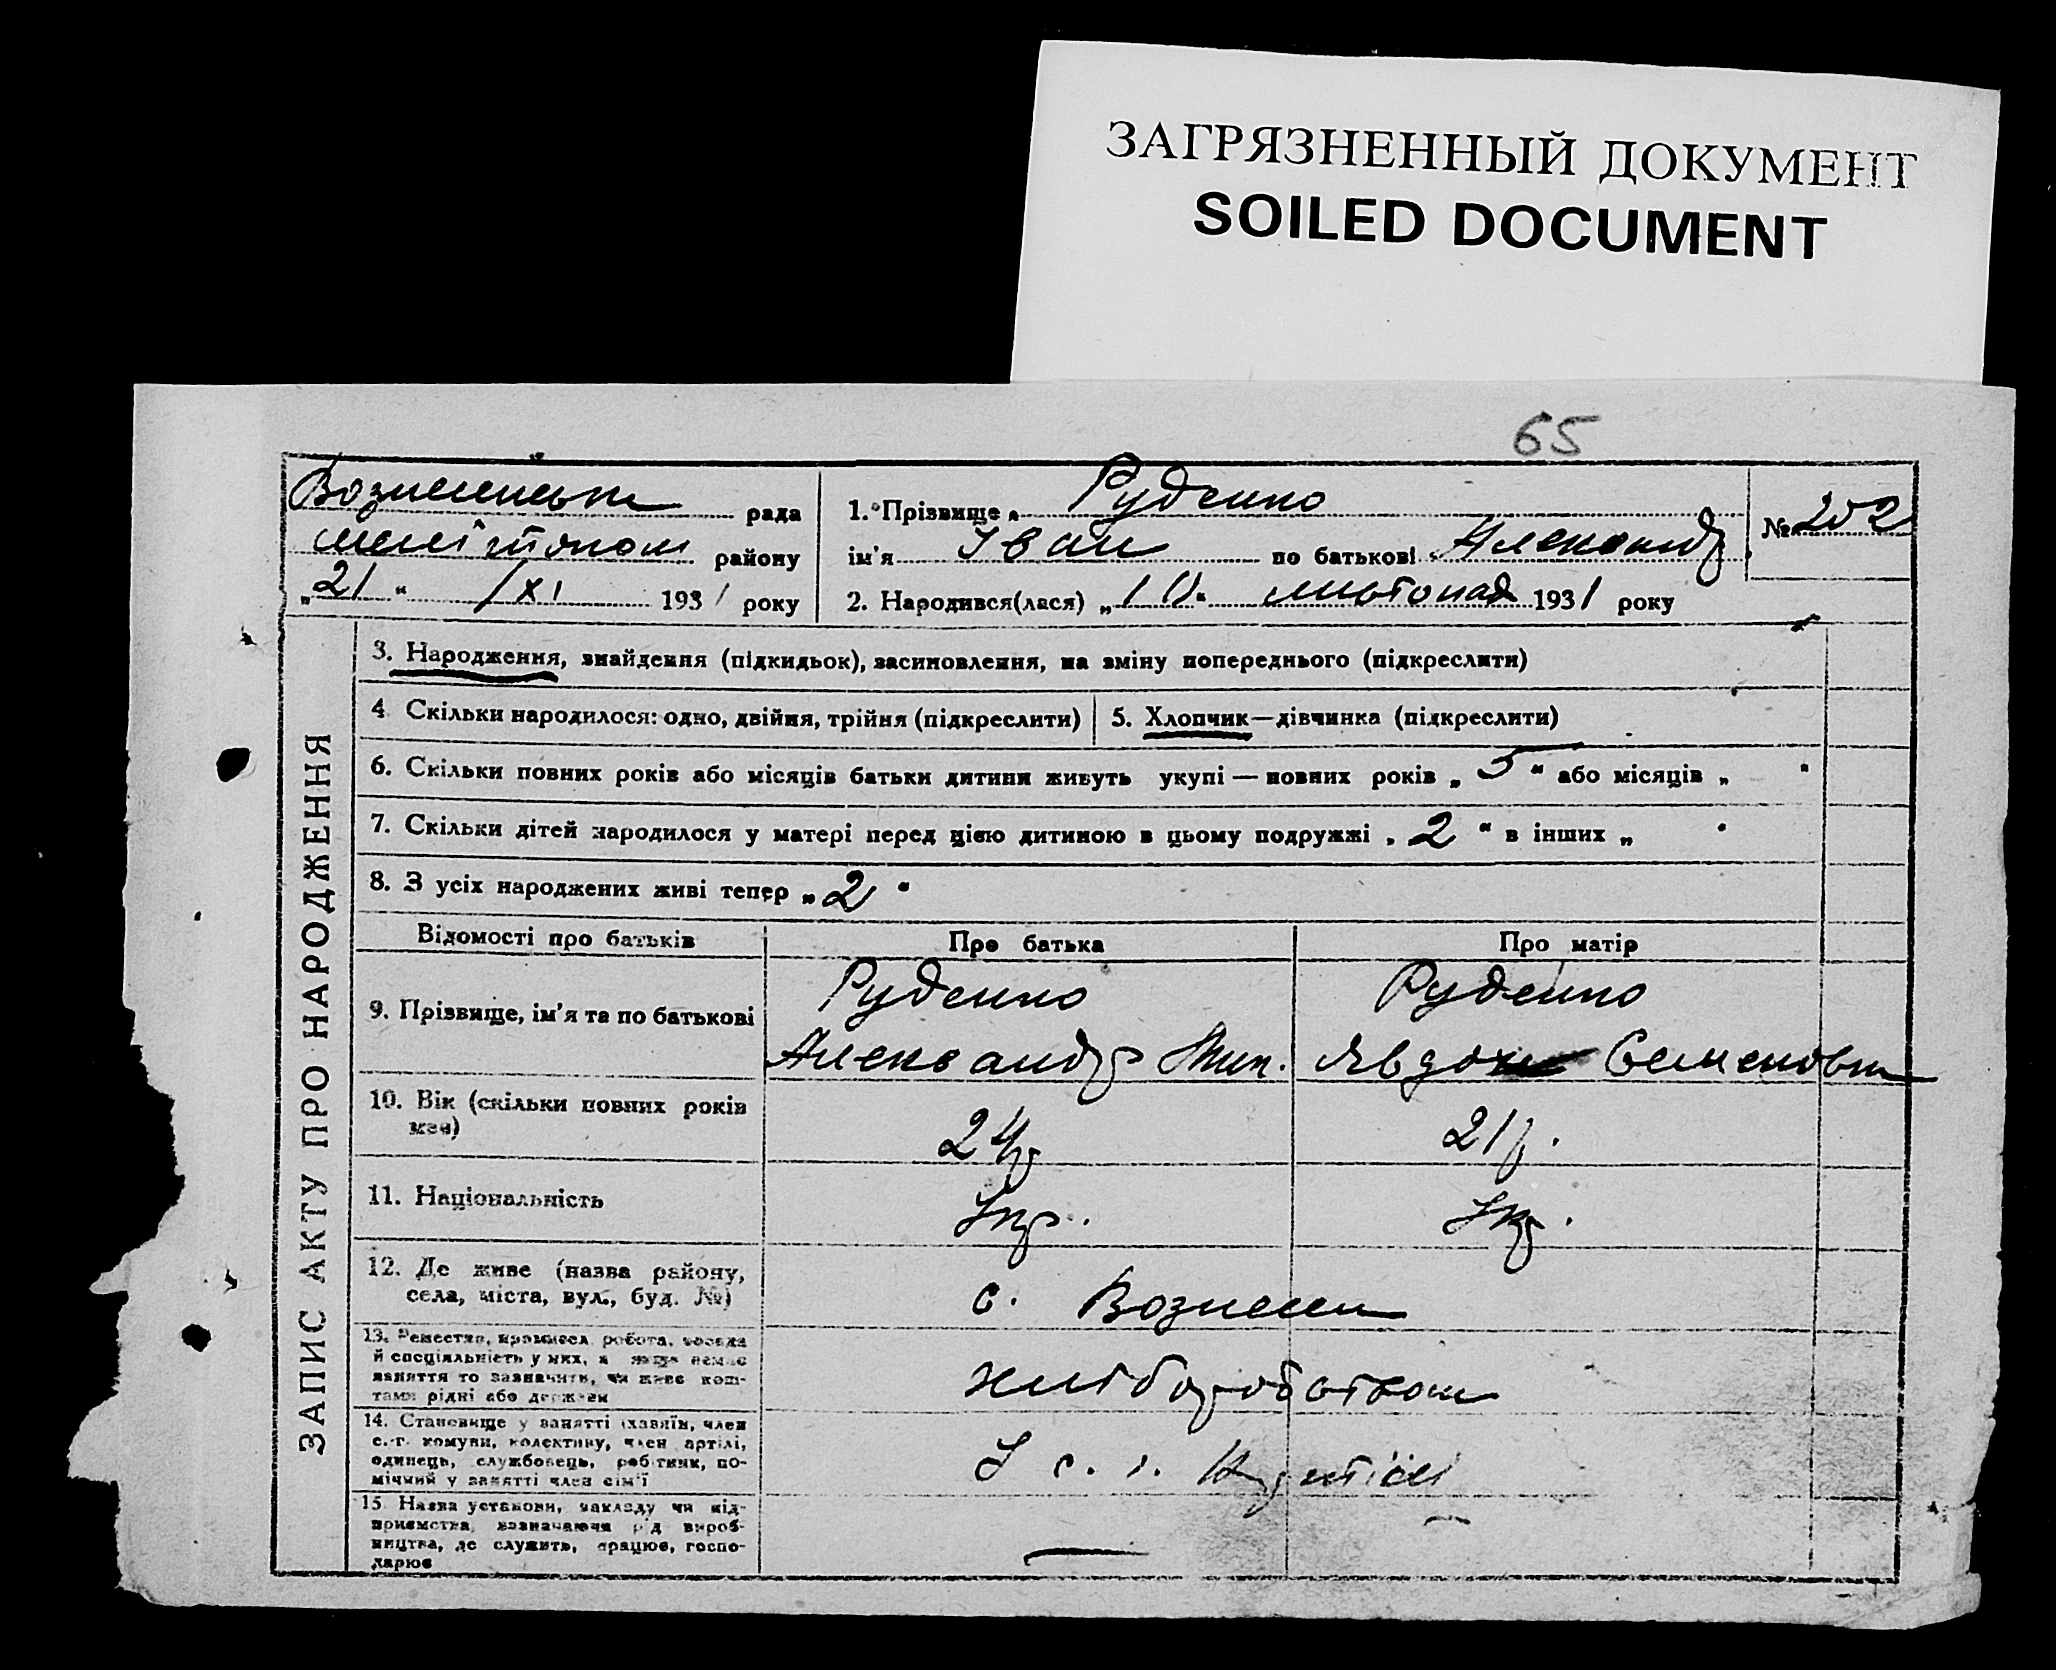 ЗАГРЯЗНЕННЫЙ ДОКУМЕНТ
SOILED DOCUMENT
65
Вознесенськ рада
мелітопол району
„21“ /XI 1931 року
1. Прізвище Руденко
ім'я Іван по батькові Александр
№ 202
2. Народився(лася) „10“ листопад 1931 року
ЗАПИС АКТУ ПРО НАРОДЖЕННЯ
3. Народження, знайдення (підкидьок), засиновлення, на зміну попереднього (підкреслити)
4 Скільки народилося: одно, двійня, трійня (підкреслити)
5. Хлопчик—дівчинка (підкреслити)
6. Скільки повних років або місяців батьки дитини живуть укупі — повних років „ 5 “ або місяців „ “
7. Скільки дітей народилося у матері перед цією дитиною в цьому подружжі „ 2 “ в інших „ “
8. З усіх народжених живі тепер „ 2 “
Відомості про батьків Про батька Про матір
9. Прізвище, ім'я та по батькові
Руденко Руденко
Александр Явдох Семеновн
10. Вік (скільки повних років
має)
24р 21р.
11. Національність
Укр. Укр.
12. Де живе (назва району,
села, міста, вул., буд. №)
с. Вознесен
13. Ремества, промисел, робота, посада
й спеціяльність у них, а якщо немає
заняття то зазначити, чи живе кош-
тами рідні або держави
хліборобством
14. Становище у занятті (хазяїн, член
с.-г. комуни, колективу, член артілі,
одинець, службовець, робітник, по-
мічний у занятті член сім'ї
У с. г. Артілі
15. Назва установи, закладу чи під-
приємства, зазначаючи рід вироб-
ництва, де служить, працює, госпо-
дарює